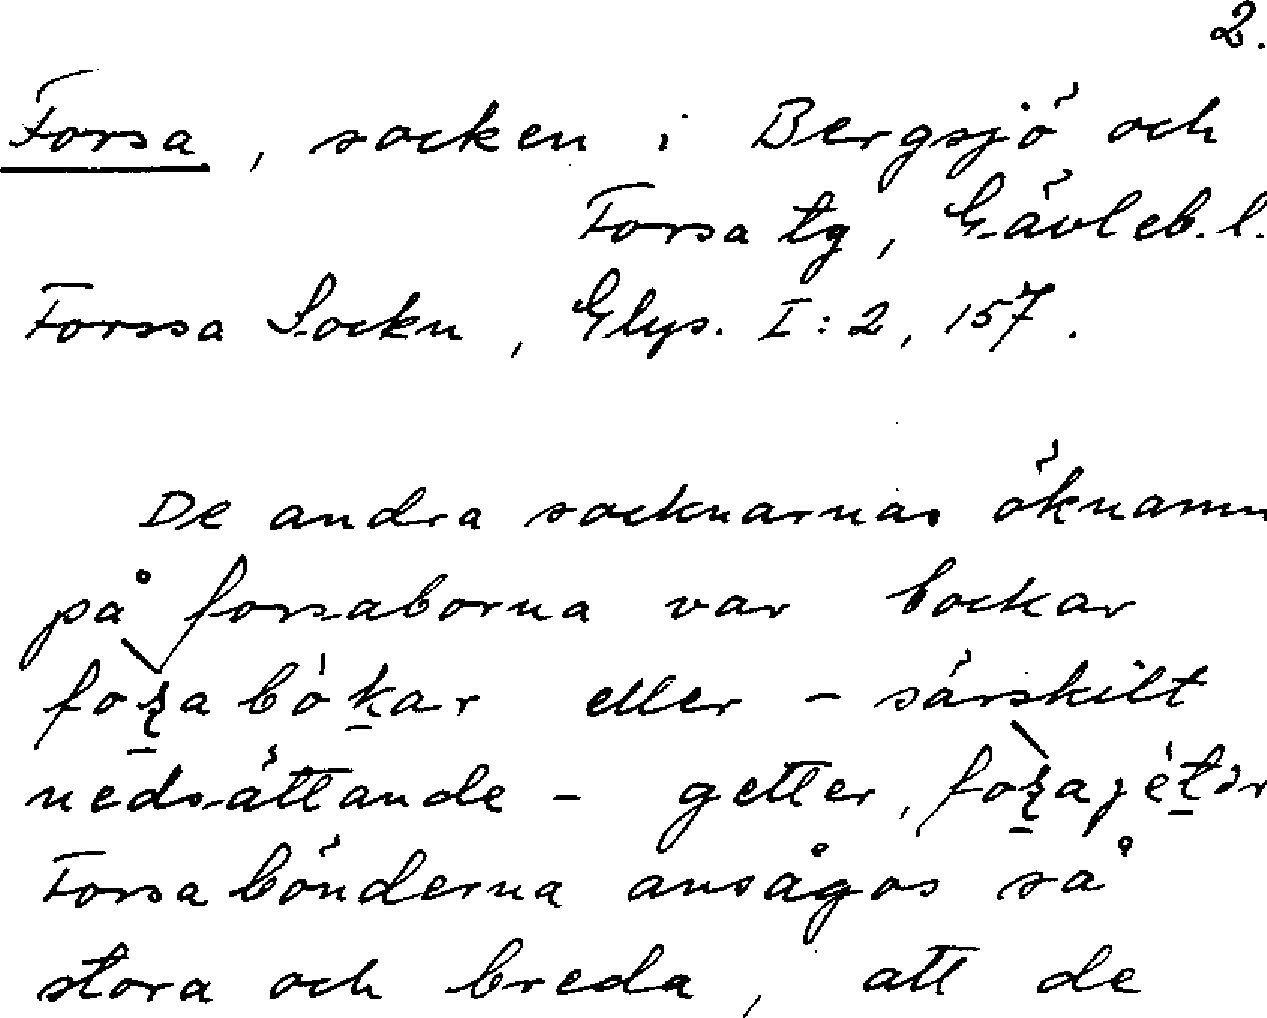 2.
Forsa, socken i Bergsjö och
Forsa tg, Gävleb. l.
Forssa Sockn, Glys. I:2, 157.
De andra socknarnas öknamn
på forsaborna var bockar
eller - särskilt
nedsättande - getter,
Forsabönderna ansågos så
stora och breda, att de